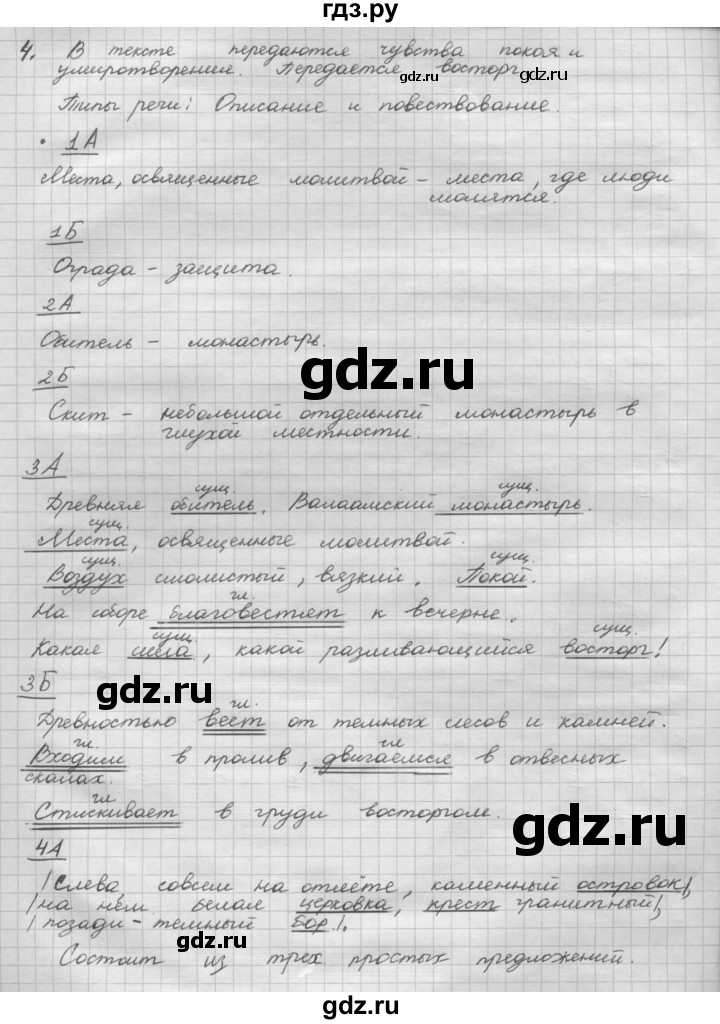 гдз.ру
4. В тексте передаются чувства покоя и
умиротворения. Передается восторг.
gdz.ru
Типы речи: Описание и повествование.
• 1А
Места, освященные молитвой – места, где люди
молятся.
1Б
Ограда – защита.
gdz.ru
2А
Обитель – монастырь.
gdz.ru
2Б
Скит – небольшой отдельный монастырь в
глухой местности.
gdz.ru
3А
сущ. сущ.
Древняя обитель. Валаамский монастырь.
сущ.
Места, освященные молитвой.
сущ. сущ.
Воздух смолистый, вязкий. Покой.
gdz.ru
гл.
На соборе благовестят к вечерне.
сущ. сущ.
Какая сила, какой разливающийся восторг!
gdz.ru
3Б
гл.
Древностью веет от темных лесов и камней.
гл. гл
Входим в пролив, двигаемся в отвесных
скалах.
гл
Стискивает в груди восторгом.
gdz.ru
4А
|Слева, совсем на отлёте, каменный островок|,
|на нём белая церковка, крест гранитный|,
|позади – темный бор|.
gdz.ru
Состоит из трех простых предложений.
gdz.ru
gdz.ru